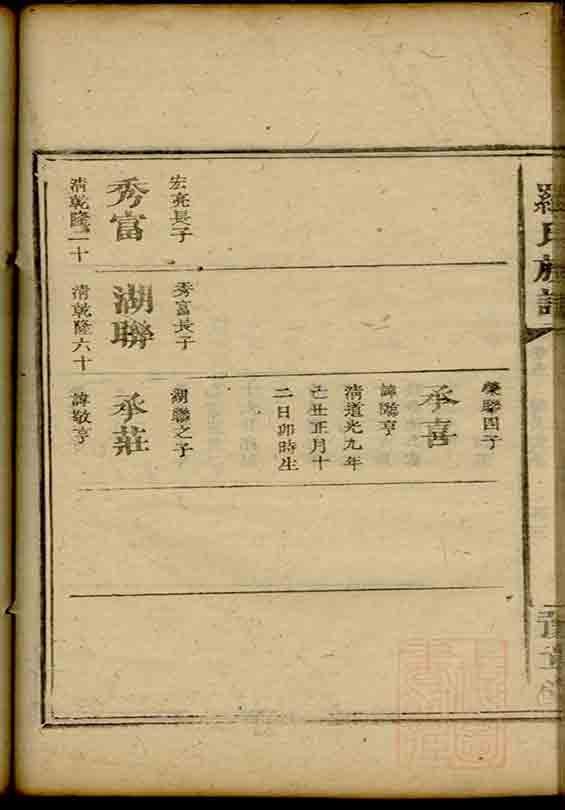 羅氏族譜
榮聯四子
承喜
諱 亨
清道光九年
己丑正月十
二日卯時生
宏亮長子
秀富
清乾隆二十
秀富長子
湖聯
清乾隆六十
湖聯之子
承莊
諱敬亨